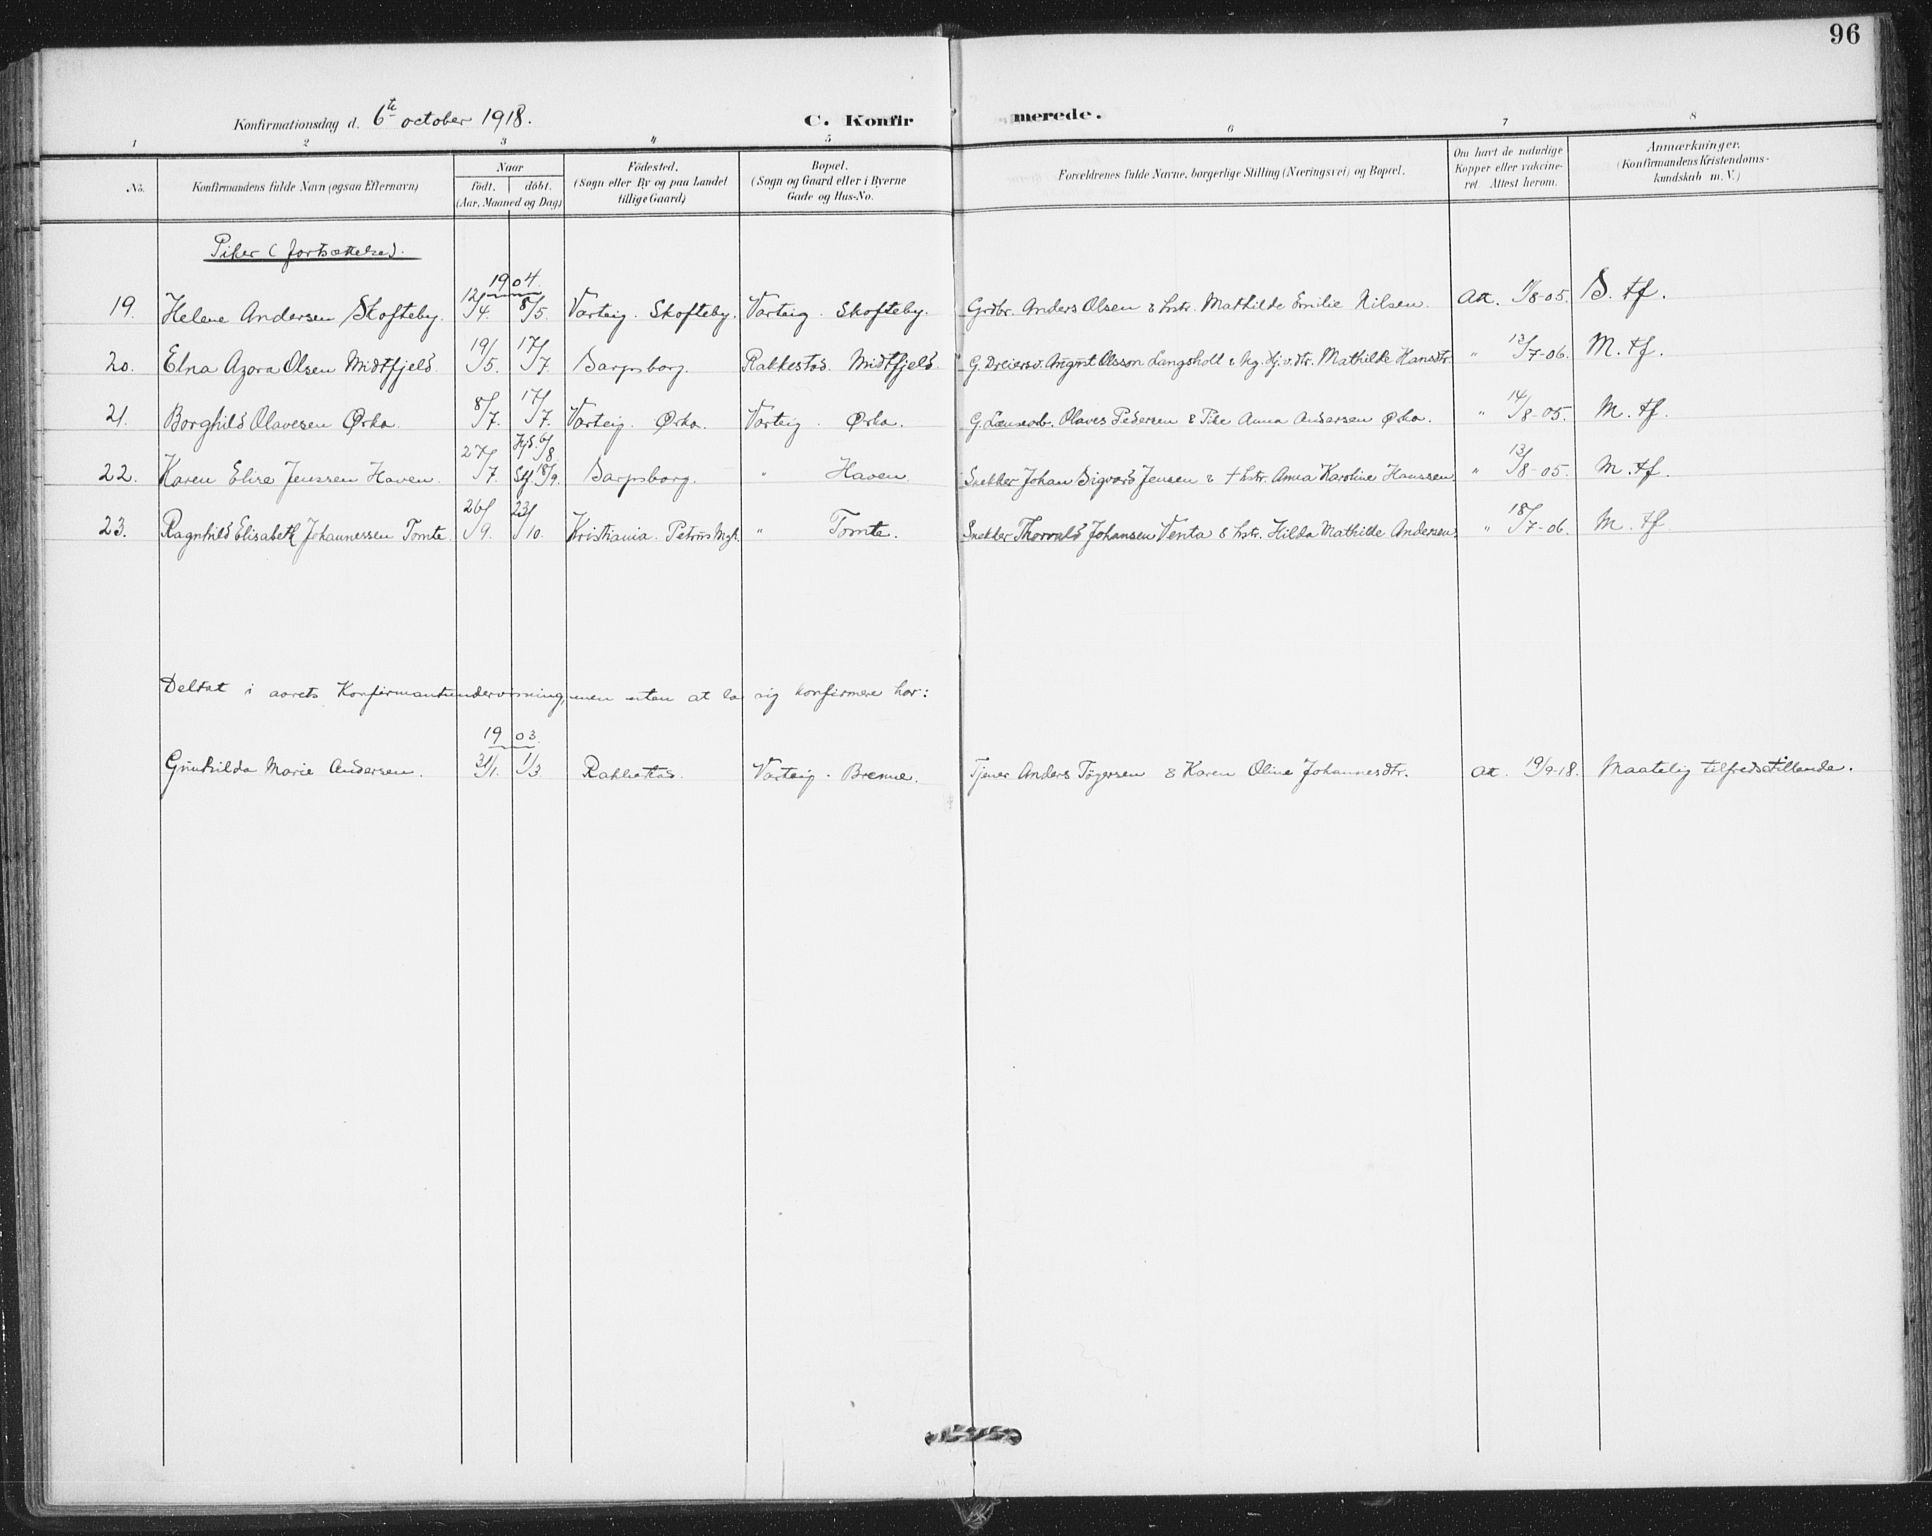 96
Konfirmationsdag d. 6te october 1918. C. Konfirmerede.
1 2 3 4 5 6 7 8
No. Konfirmandens fulde Navn (ogsaa Efternavn) Naar født. døbt. (Aar, Maaned og Dag) Fødested. (Sogn eller By og paa Landet tillige Gaard) Bopæl. (Sogn og Gaard eller i Byerne Gade og Hus-No. Forældrenes fulde Navne, borgerlige Stilling (Næringsvei) og Bopæl. Om havt de naturlige Kopper eller vakcineret. Attest herom. Anmærkninger. (Konfirmandens Kristendomskundskab m. V.)
Piker (fortsættelse).
1904.
19. Helene Andersen Skofteby. 12/4. 8/5. Varteig. Skofteby. Varteig. Skofteby. Grdbr. Anders Olsen & hstr. Mathilde Emilie Nilsen. Att. 1/8-05. S. tf.
20. Elna Azora Olsen Midtfjeld. 19/5. 17/7. Sarpsborg. Rakkestad. Midtfjeld. G. Dreiersv. August Olsson Langsholt & Ug. Hj.v. dtr. Mathilde Hansdtr. " 13/7-06. M. tf.
21. Borghild Olavesen Ørka. 8/7. 17/7. Varteig. Ørka. Varteig. Ørka. G. Olaves Pedersen & Pike Anna Andersen Ørka. " 14/8-05. M. tf.
22. Karen Elise Jenssen Haven. 27/7. Hjd. 6/8 Stf. 18/9. Sarpsborg. " Haven. Snekker Johan Sigvard Jensen & † hstr. Anna Karoline Hanssen " 13/8-05. M. tf.
23. Ragnhild Elisabeth Johannessen Tomte. 26/9. 23/10. Kristiania. Petrus Mgh. " Tomte. Snekker Thorvald Johansen Venta & hstr. Hilda Mathilde Andersen. " 18/7-06. M. tf
Deltat i aarets Konfirmantundervisning, men uten at la sig konfirmere har:
1903.
Gunhilda Marie Andersen. 31/1. 1/3 Rakkestad. Varteig. Brenne. Tjener Anders Tøgersen & Karen Oline Johannesdtr. Att. 19/9-18. Maatelig tilfredsstillende.